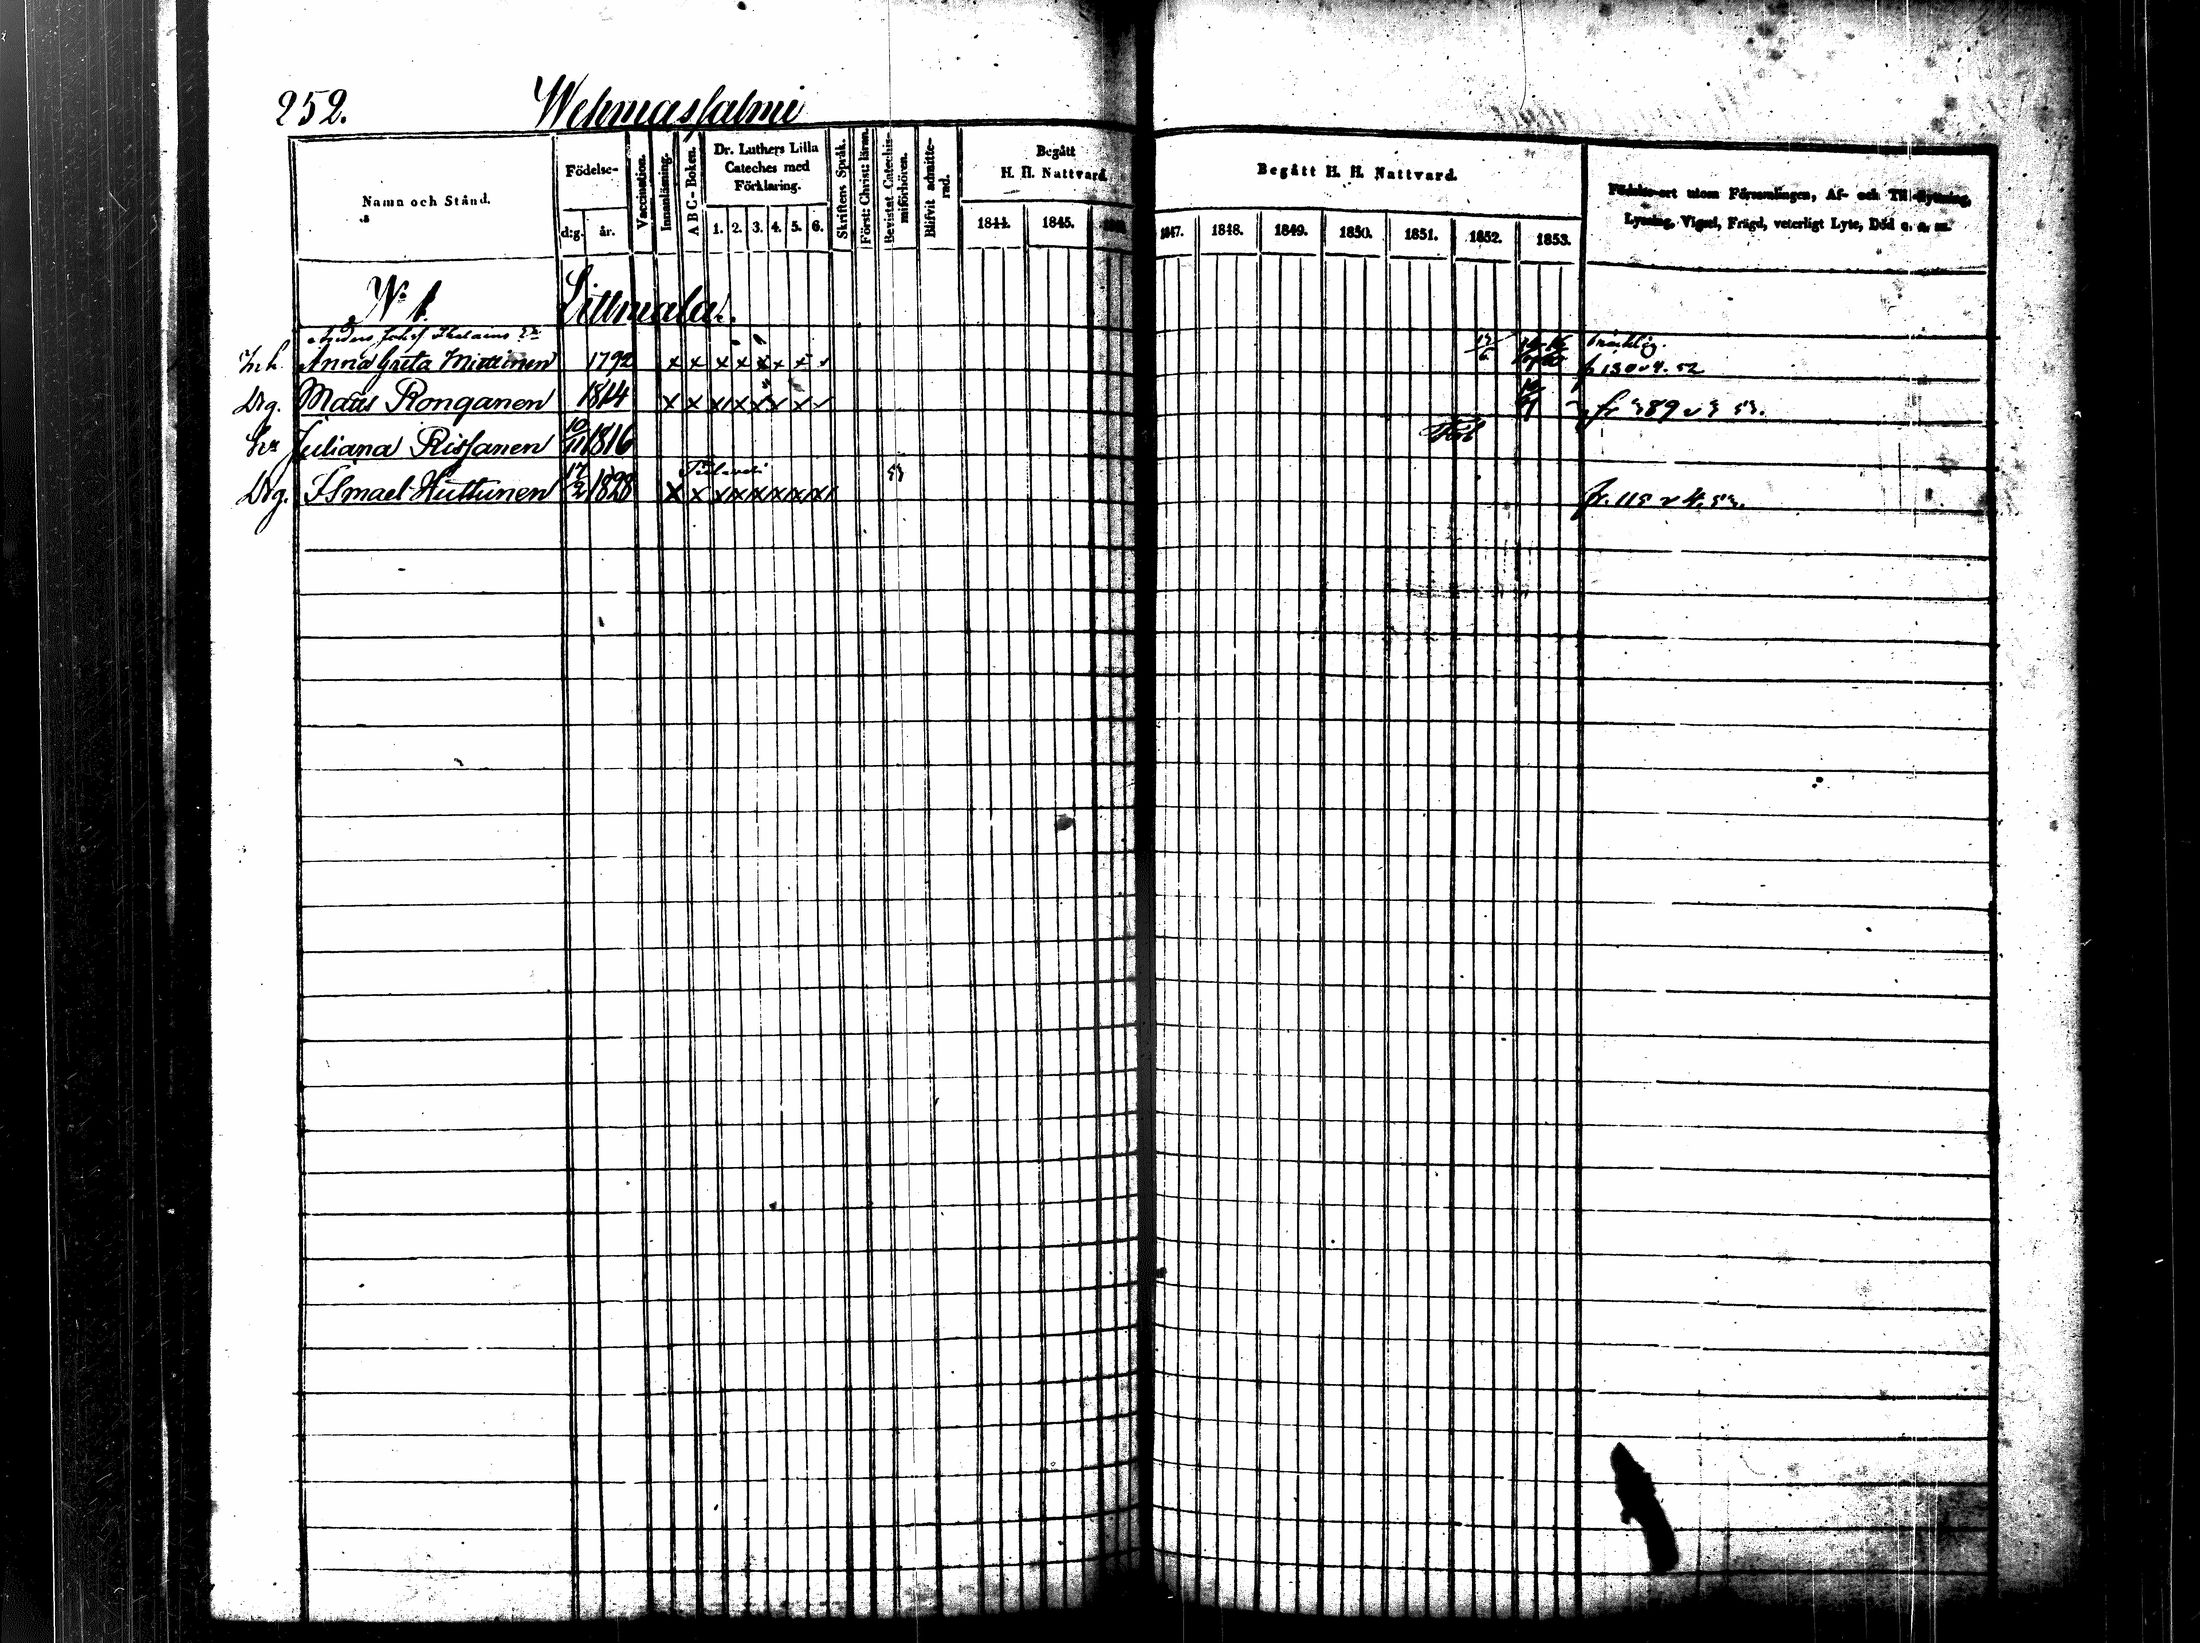 252. Wehmassalmi
Namn och Stånd.
Födelse-
d:g. år.
Vaccination.
Innanläsning.
A B C - Boken.
Dr. Luthers Lilla
Cateches med
Förklaring.
1. 2. 3. 4. 5. 6.
Skriftens Språk.
Först: Christi: läran.
Bevistat Catechis-
miförhören.
Blifvit admitte-
rad.
Begått
H. H. Nattvard
1844. 1845.
Begått H. H. Nattvard.
1847. 1848. 1849. 1850. 1851. 1852. 1853.
Födelse-ort utom Församlingen, Af- och Till-flyttning,
Lysning, Vigsel, Frägd, veterligt Lyte, Död o. s. m.
N:o 1. Littmala.
Inh. Anna Greta Miettinen 1792 x x x x x x x x 17/6
bräcklig.
fr 130 v 4. 52
Drg. Matts Ronganen 1814 x x x x x x x x fr 389 v 3 53.
Hu Juliana Rissanen 10/11 1816
Drg. Ismael Huttunen 17/2 1828 x x x x x x x x 53 fr. 115 v 4. 53.